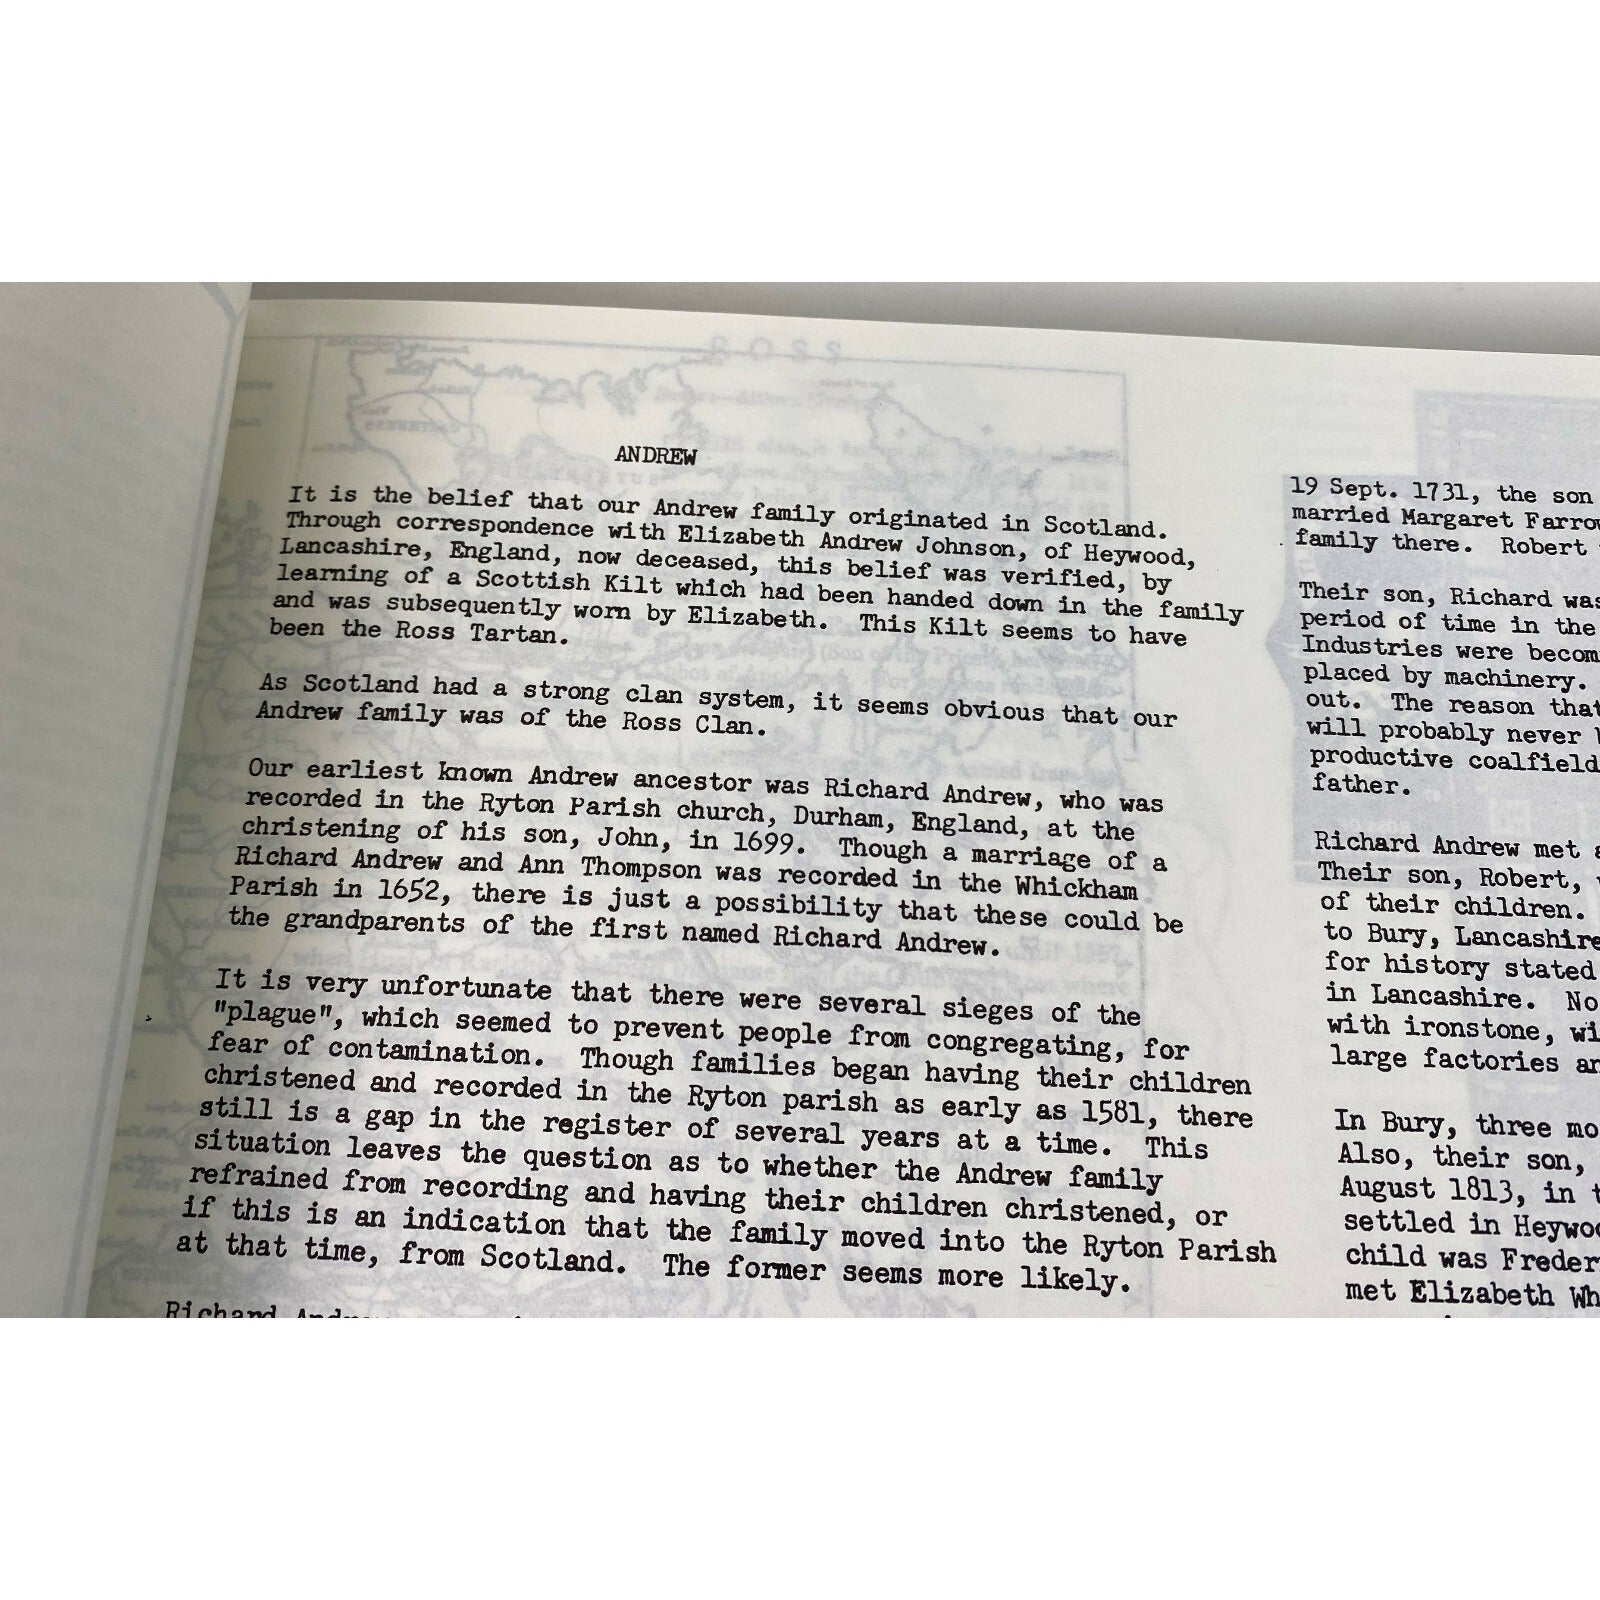 ANDREW
It is the belief that our Andrew family originated in Scotland.
Through correspondence with Elizabeth Andrew Johnson, of Heywood,
Lancashire, England, now deceased, this belief was verified, by
learning of a Scottish Kilt which had been handed down in the family
and was subsequently worn by Elizabeth. This Kilt seems to have
been the Ross Tartan.
As Scotland had a strong clan system, it seems obvious that our
Andrew family was of the Ross Clan.
Our earliest known Andrew ancestor was Richard Andrew, who was
recorded in the Ryton Parish church, Durham, England, at the
christening of his son, John, in 1699. Though a marriage of a
Richard Andrew and Ann Thompson was recorded in the Whickham
Parish in 1652, there is just a possibility that these could be
the grandparents of the first named Richard Andrew.
It is very unfortunate that there were several sieges of the
"plague", which seemed to prevent people from congregating, for
fear of contamination. Though families began having their children
christened and recorded in the Ryton parish as early as 1581, there
still is a gap in the register of several years at a time. This
situation leaves the question as to whether the Andrew family
refrained from recording and having their children christened, or
if this is an indication that the family moved into the Ryton Parish
at that time, from Scotland. The former seems more likely.
Richard
19 Sept. 1731, the son
married Margaret
family there. Robert
Their son, Richard
period of time in the
Industries were
placed by machinery.
out. The reason
will probably never
productive
father.
Richard Andrew met
Their son, Robert,
of their children.
to Bury, Lancashire
for history stated
in Lancashire. No
with ironstone,
large factories
In Bury, three
Also, their son,
August 1813, in
settled in
child was
met Elizabeth